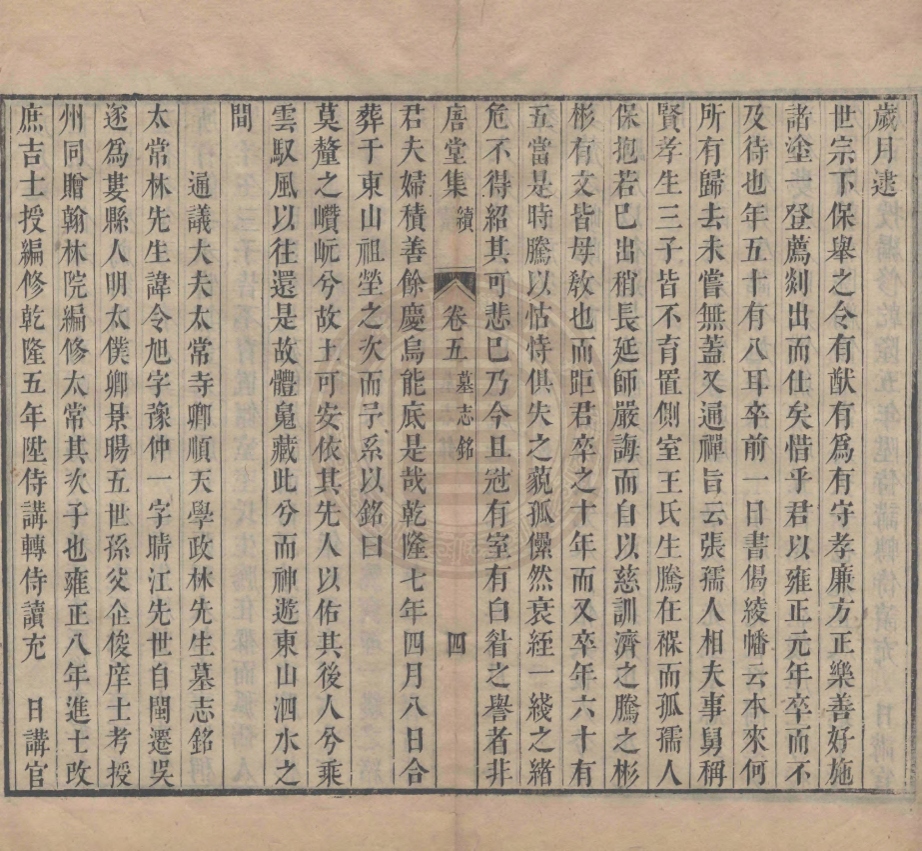 歲月逮
世宗下保舉之令有猷有爲有守孝廉方正樂善好施
諸塗一登薦剡出而仕矣惜乎君以雍正元年卒而不
及待也年五十有八耳卒前一日書偈綾幡云本來何
所有歸去未嘗無蓋又通禪旨云張孺人相夫事舅稱
賢孝生三子皆不育置側室王氏生騰在褓而孤孺人
保抱若已出稍長延師嚴誨而自以慈訓濟之騰之彬
彬有文皆母敎也而距君卒之十年而又卒年六十有
五當是時騰以怙恃俱失之藐孤儽然衰絰一綫之緒
危不得紹其可悲巳乃今且冠有室有白眉之譽者非
㾗堂集 續 卷五 墓志銘 四
君夫婦積善餘慶烏能底是哉乾隆七年四月八日合
葬于東山祖塋之次而予系以銘曰
莫釐之巑岏兮故土可安依其先人以佑其後人兮乘
雲馭風以往還是故體魄藏此兮而神遊東山泗水之
間
通議大夫太常寺卿順天學政林先生墓志銘
太常林先生諱令旭字豫仲一字晴江先世自閩遷吳
遂爲婁縣人明太僕卿景暘五世孫父企俊庠士考授
州同贈翰林院編修太常其次子也雍正八年進士改
庶吉士授編修乾隆五年陞侍講轉侍讀充 日講官